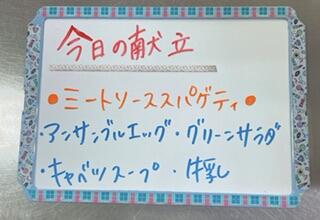 今日の献立
•ミートソーススパゲティ•
・アンサンブルエッグ・グリーンサラダ
・キャベツスープ ・牛乳